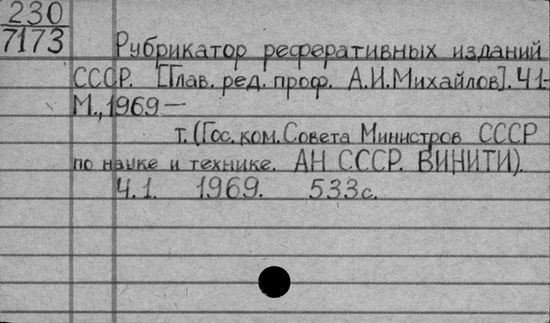 230
7173
Рубрикатор реферативных изданий
СССР. [Глав. ред. проф. А.И.Михайлов]. Ч1-
М., 1969 —
т. (Гос. ком. Совета Министров СССР
по науке и технике. АН СССР. ВИНИТИ).
Ч.1. 1969. 533с.